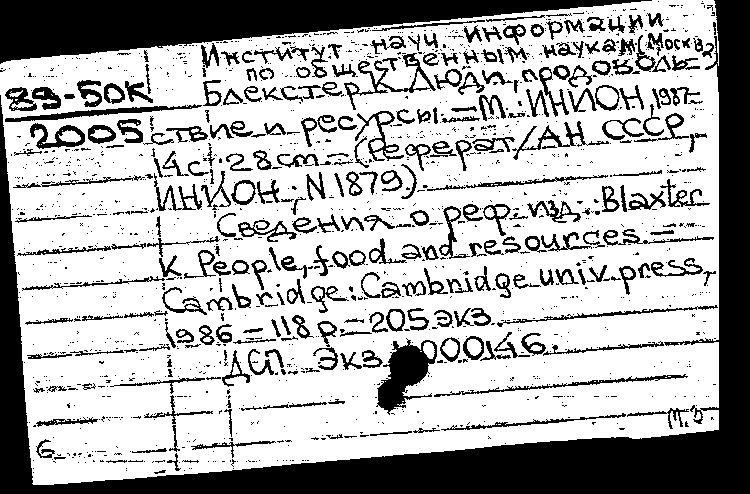 Институт науч. информации
по общественным наукам (Москва)
89-50К
Блекстер К. Люди, продоволь-
2005
ствие и ресурсы.—М.: ИНИОН, 1987.—
14 с.; 28 cm.—(Реферат/АН СССР,
ИНИОН; N 1879).
Сведения о реф. изд.: Blaxter
K. People, food and resources.—
Cambridge: Cambridge univ. press,
1986.—118 p.—205 экз.
ДСП Экз. N 000146.
6